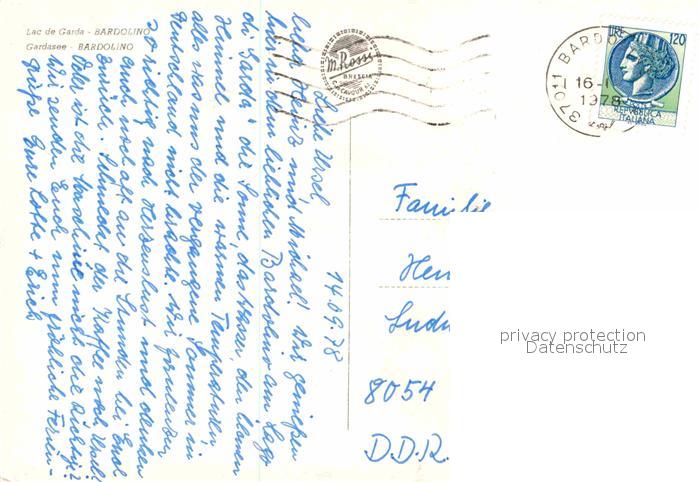 Lac de Garda - BARDOLINO
Gardasee - BARDOLINO
14.09.78
Liebe Ursel
lieber Heinz und Michael! Wir genießen
hier in dem lieblichen Bardolino am Lago
di Garda die Sonne, das Wasser, den blauen
Himmel und die warmen Temperaturen,
alles was der vergangene Sommer in
Deutschland nicht brachte. Wir
so richtig nach Herzenslust und denken
auch noch oft an die Stunden bei Euch
zurück. Schmeckt der Kaffee noch,
Oder ist die Maschine nicht die Richtige?
Wir senden Euch nun fröhliche Ferien-
grüße Eure Lotte + Erich
M. Rossi
BRESCIA
37011 BARDO
16-
1978
LIRE 120
REPUBBLICA
ITALIANA
Familie
Hen
Ludw
8054
D.D.R.
privacy protection
Datenschutz